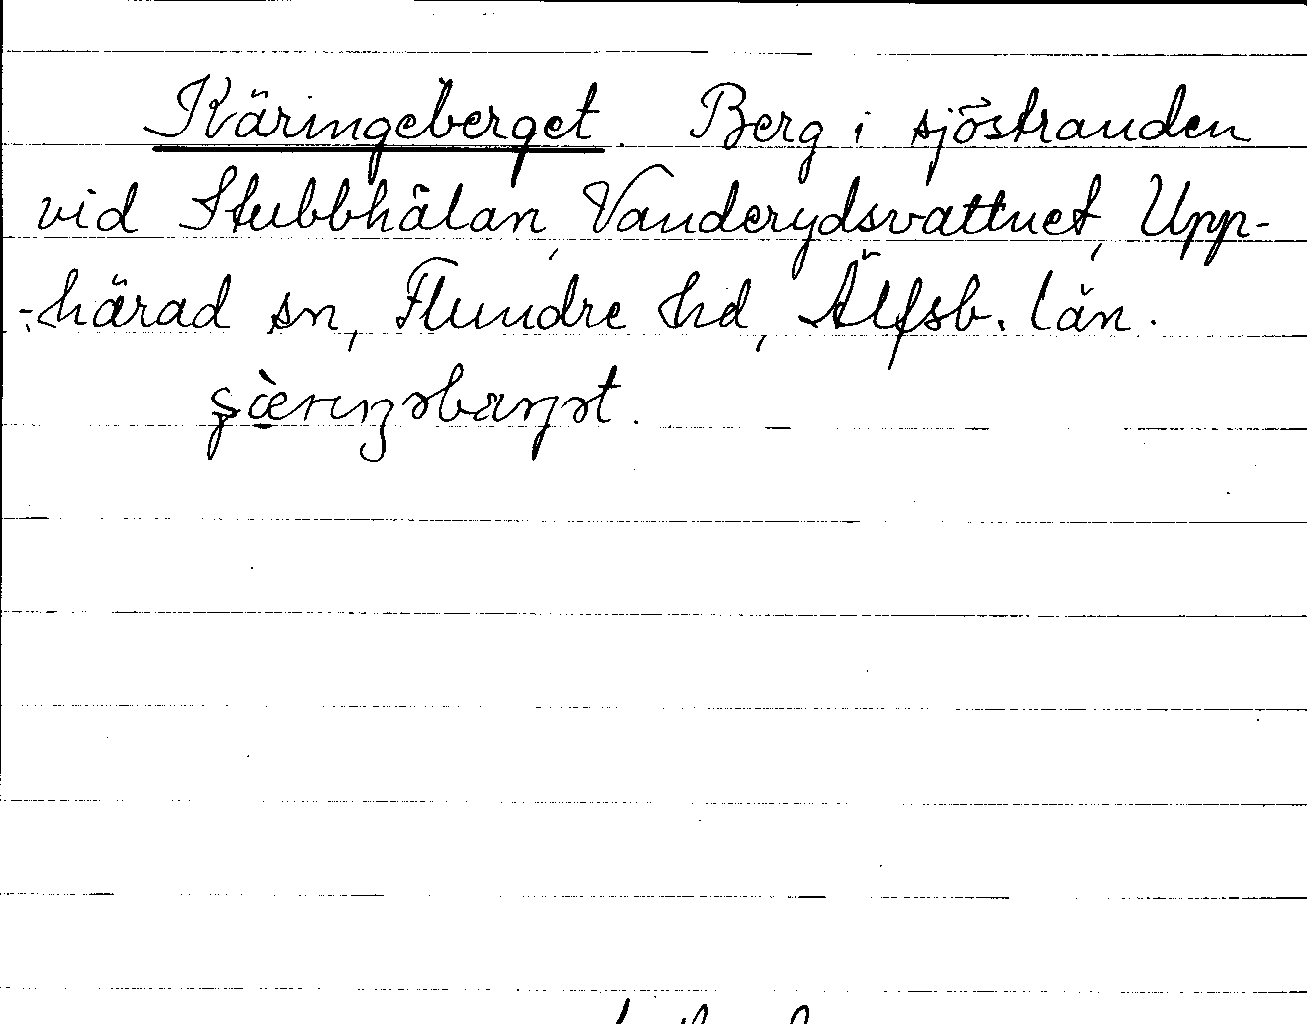 Käringeberget. Berg i sjöstranden
vid Stubbhålan, Vanderydsvattnet, Upp-
-härad sn, Flundre hd, Älfsb. län.